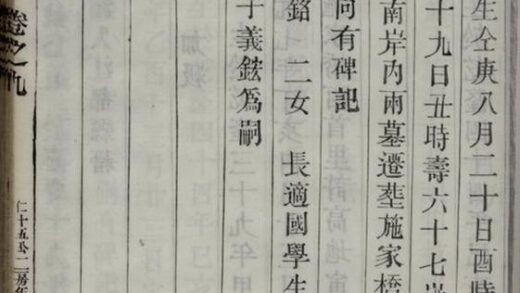 生仝庚八月二十日酉時
十九日丑時壽六十七
南岸內兩墓遷塟施家橋
向有碑記
銘 二女 長適國學生
子義鋐爲嗣
卷之九
仁十五公二房年